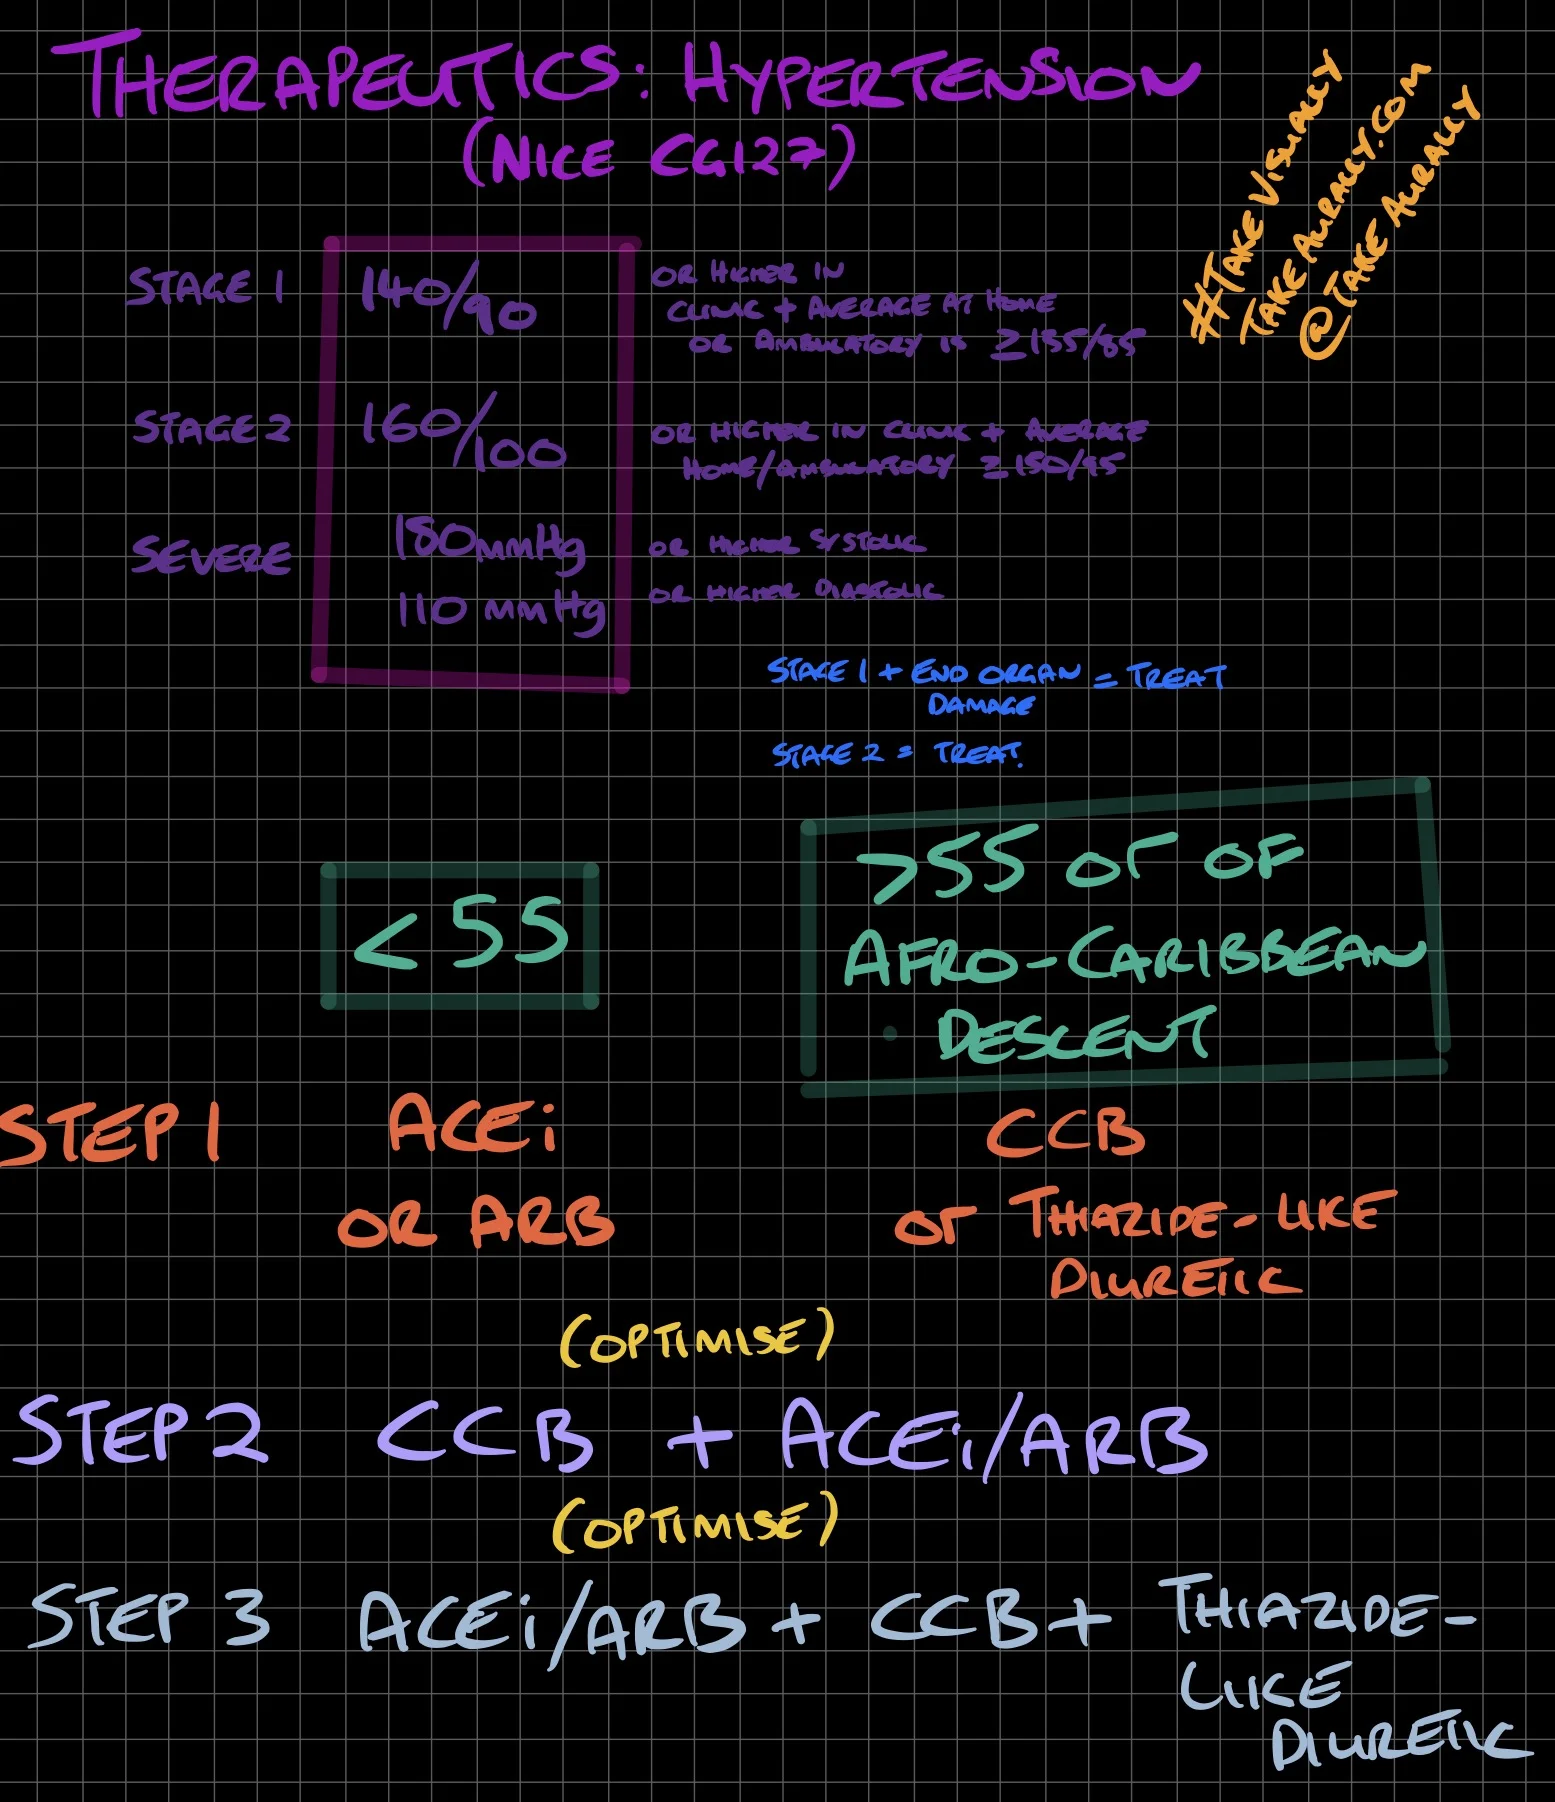 THERAPEUTICS: HYPERTENSION
(NICE CG127)
#TAKE VISUALLY
TAKE AURALLY.COM
@TAKE AURALLY
STAGE 1 140/90 OR HIGHER IN
CLINIC + AVERAGE AT HOME
OR AMBULATORY IS ≥155/85
STAGE 2 160/100 OR HIGHER IN CLINIC + AVERAGE
HOME/AMBULATORY ≥150/95
SEVERE 180mmHg OR HIGHER SYSTOLIC
110 mmHg OR HIGHER DIASTOLIC
STAGE 1 + END ORGAN = TREAT
DAMAGE
STAGE 2 = TREAT.
<55
>55 or OF
AFRO-CARIBBEAN
DESCENT
STEP 1 ACEi CCB
OR ARB or THIAZIDE-LIKE
DIURETIC
(OPTIMISE)
STEP 2 CCB + ACEi/ARB
(OPTIMISE)
STEP 3 ACEi/ARB + CCB + THIAZIDE-
LIKE
DIURETIC